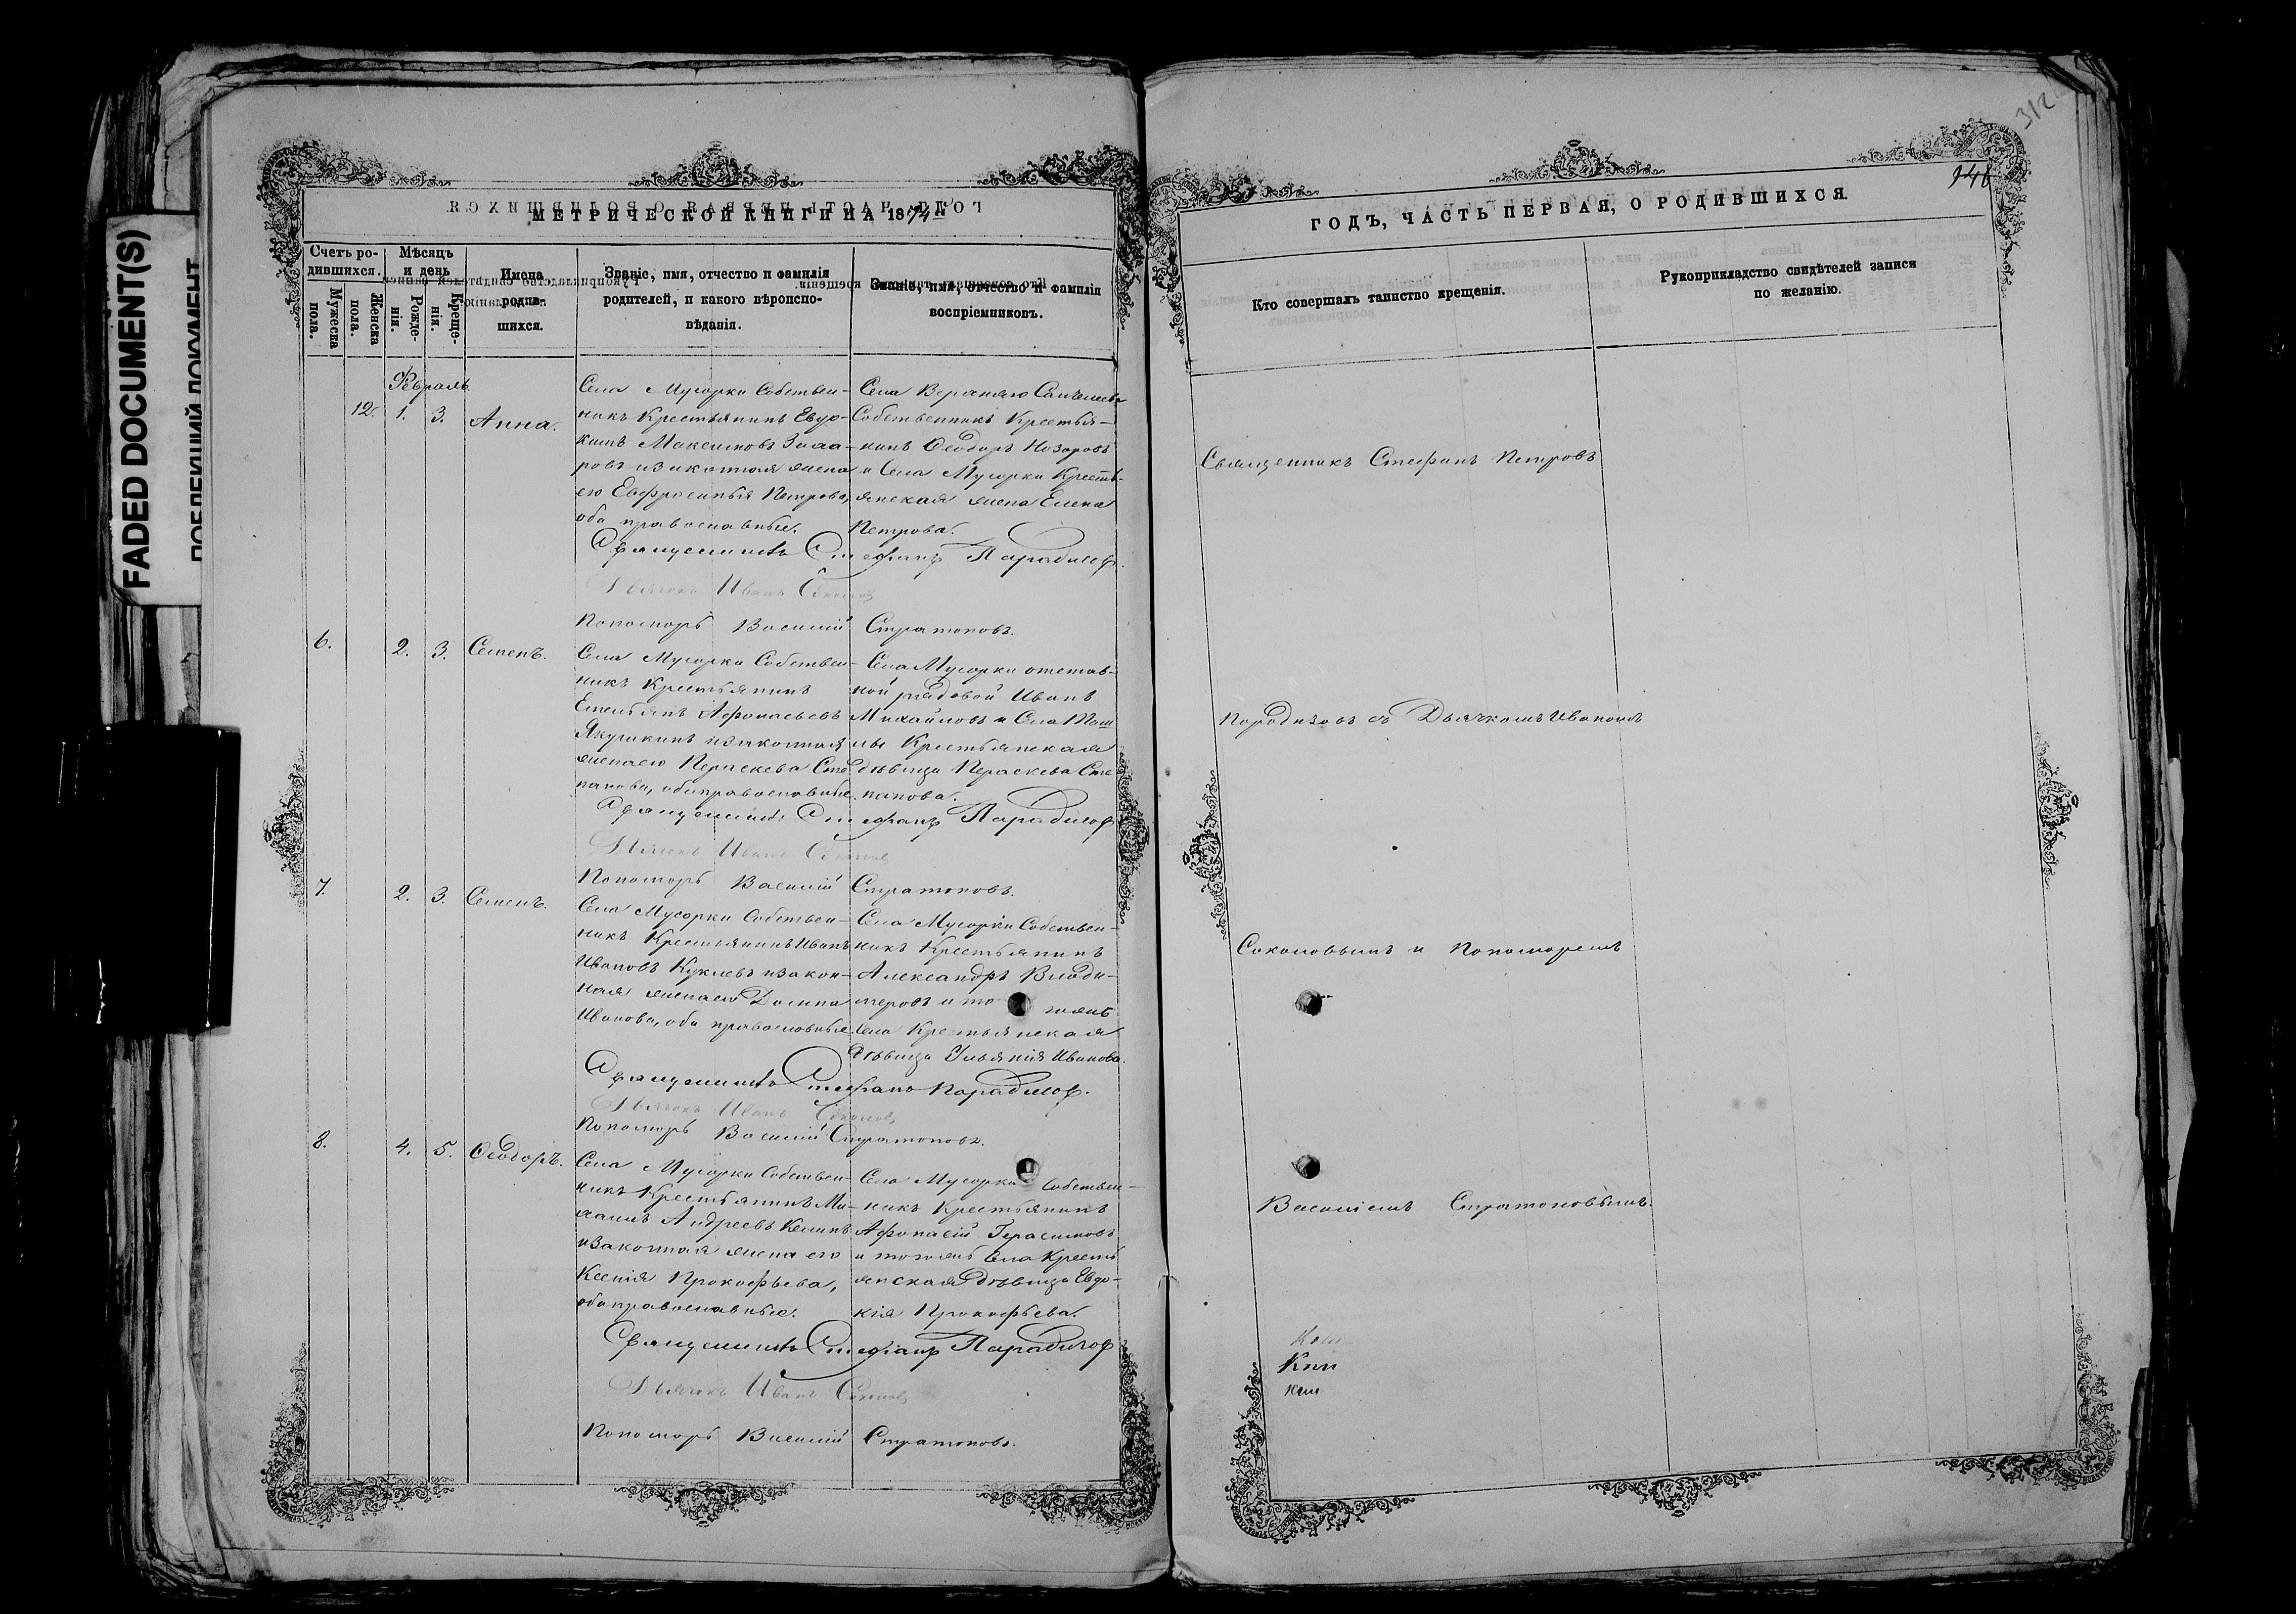 FADED DOCUMENT(S)
МЕТРИЧЕСКОЙ КНИГИ НА 1874
Счетъ ро-
дившихся.
Мужеска
пола.
Женска
пола.
Мѣсяцъ
и день
Рожде-
нія.
Креще-
нія.
Имена
родив-
шихся.
Званіе, имя, отчество и фамилія
родителей, и какого вѣроиспо-
вѣданія.
Званіе, имя, отчество и фамилія
воспріемниковъ.
Февраль
12. 1. 3. Анна.
Села Мусорки Собствен-
никъ Крестьянинъ Евдо-
кимъ Максимовъ
ровъ и законная жена
его Евфросинья Петрова,
оба православные.
Села
Собственникъ Крестья-
нинъ Ѳеодоръ Назаровъ
и Села Мусорки Кресть-
янская жена Елена
Петрова.
Священникъ Стефанъ Парадизов.
Дьячокъ Иванъ Соколов
Пономорь Василий Стратоновъ.
6. 2. 3. Семенъ.
Села Мусорки Собствен-
никъ Крестьянинъ
Емельянъ Афонасьевъ
Якушкинъ и законная
жена его Параскева Сте
панова, оба православные.
Села Мусорки отстав-
ной рядовой Иванъ
Михайловъ и Села Таш
лы Крестьянская
дѣвица Параскева Сте
панова.
Священникъ Стефанъ Парадизов
Дьячокъ Иванъ Соколов
Пономорь Василий Стратоновъ.
7. 2. 3. Семенъ.
Села Мусорки Собствен-
никъ Крестьянинъ Иванъ
Ивановъ Куклевъ и закон-
ная жена его Домна
Иванова, оба православные
Села Мусорки Собствен-
никъ Крестьянинъ
Александръ Влади-
меровъ и то гожъ
Села Крестьянская
дѣвица Ульянія Иванова.
Священникъ Стефанъ Парадизов.
Дьячокъ Иванъ Соколов
Пономорь Василий Стратоновъ.
8. 4. 5. Ѳеодоръ.
Села Мусорки Собствен-
никъ Крестьянинъ Ми-
хаилъ Андреевъ Келинъ
и законная жена его
Ксенія Прокофьева,
оба православные.
Села Мусорки Собствен-
никъ Крестьянинъ
Афонасій Герасимовъ
и тогожъ Села Кресть
янская дѣвица Евдо-
кія Прокофьева.
Священникъ Стефанъ Парадизов
Дьячокъ Иванъ Соколов
Пономорь Василий Стратоновъ.
312
146
ГОДЪ, ЧАСТЬ ПЕРВАЯ, О РОДИВШИХСЯ.
Кто совершалъ таинство крещенія.
Рукоприкладство свидѣтелей записи
по желанію.
Священникъ Стефанъ Петровъ
Пародизовъ съ Дьячкомъ Иваномъ
Соколовымъ и Пономоремъ
Василіемъ Стратоновымъ.